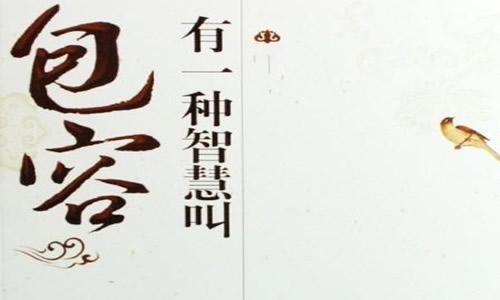 有一种智慧叫
包容